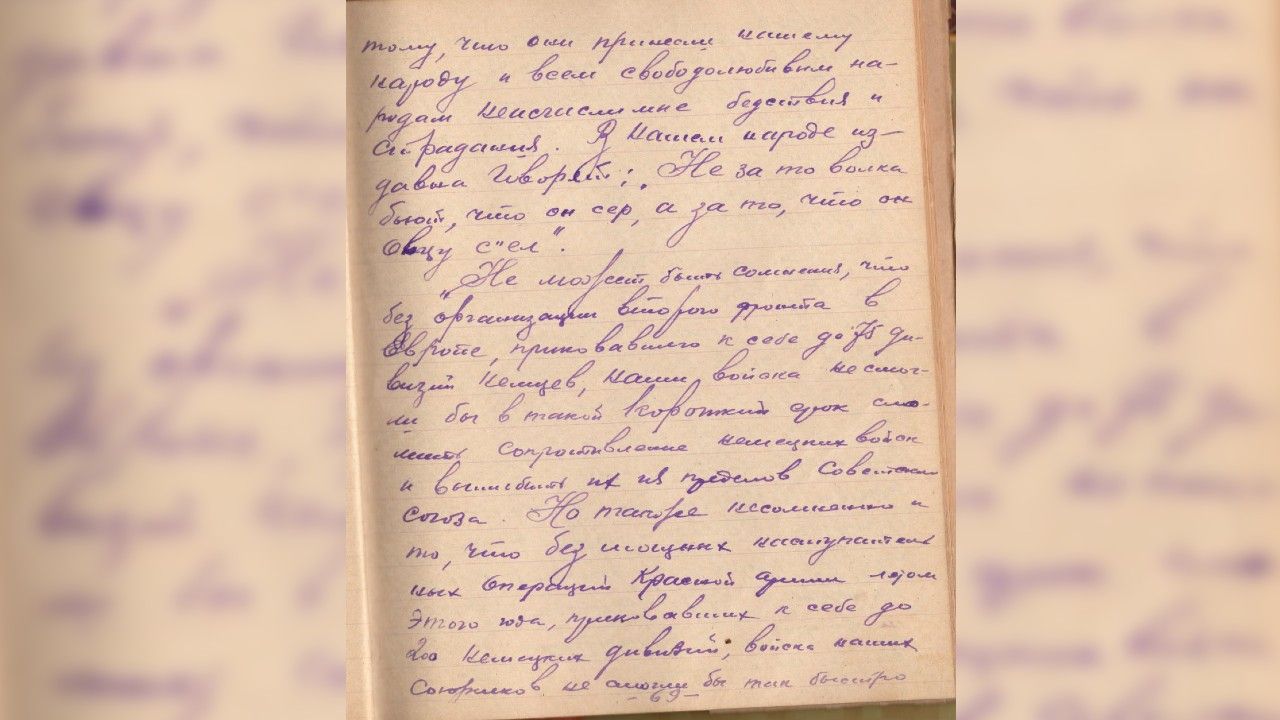 тому, что они принесли нашему
народу и всем свободолюбивым на-
родам неисчислимые бедствия и
страдания. В нашем народе из-
давна говорят: „Не за то волка
бьют, что он сер, а за то, что он
Овцу с"ел".
„Не может быть сомнения, что
без организации второго фронта в
Европе, приковавшего к себе до 75 ди-
визий немцев, наши войска не смог-
ли бы в такой короткий срок сло-
мить сопротивление немецких войск
и вышибить их из пределов Советского
союза. Но также несомненно и
то, что без мощных наступатель
ных операций Красной армии летом
Этого года, приковавших к себе до
200 немецких дивизий, войска наших
Союзников не смогли бы так быстро
- 69 -